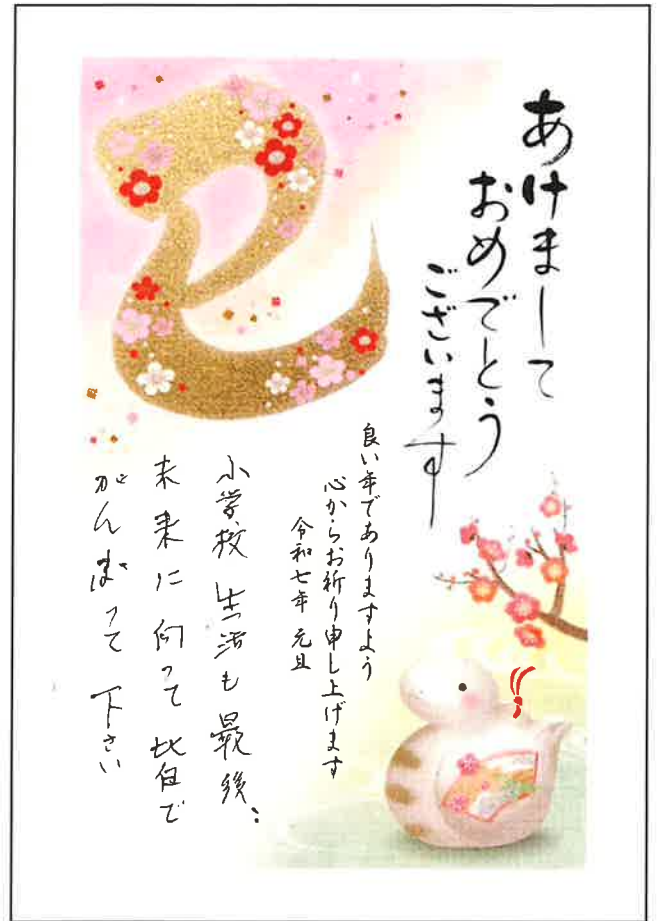 あけまして
おめでとう
ございます
良い年でありますよう
心からお祈り申し上げます
令和七年 元旦
小学校生活も最後、
未来に向って皆で
がんばって下さい